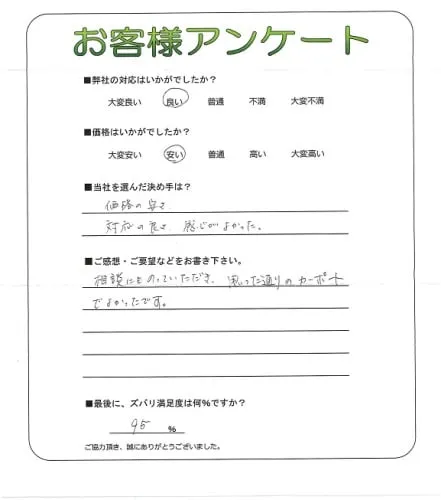 お客様アンケート
■弊社の対応はいかがでしたか?
大変良い 良い 普通 不満 大変不満
■価格はいかがでしたか?
大変安い 安い 普通 高い 大変高い
■当社を選んだ決め手は?
価格の安さ
対応の良さ、感じがよかった。
■ご感想・ご要望などをお書き下さい。
相談にものっていただき、思った通りのカーポート
でよかったです。
■最後に、ズバリ満足度は何%ですか?
95 %
ご協力頂き、誠にありがとうございました。